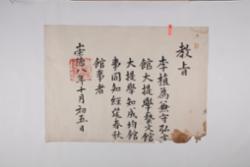 教旨
李植爲兼守弘文
館大提學藝文館
大提學知成均館
事同知經筵春秋
館事者
崇德八年十月初五日